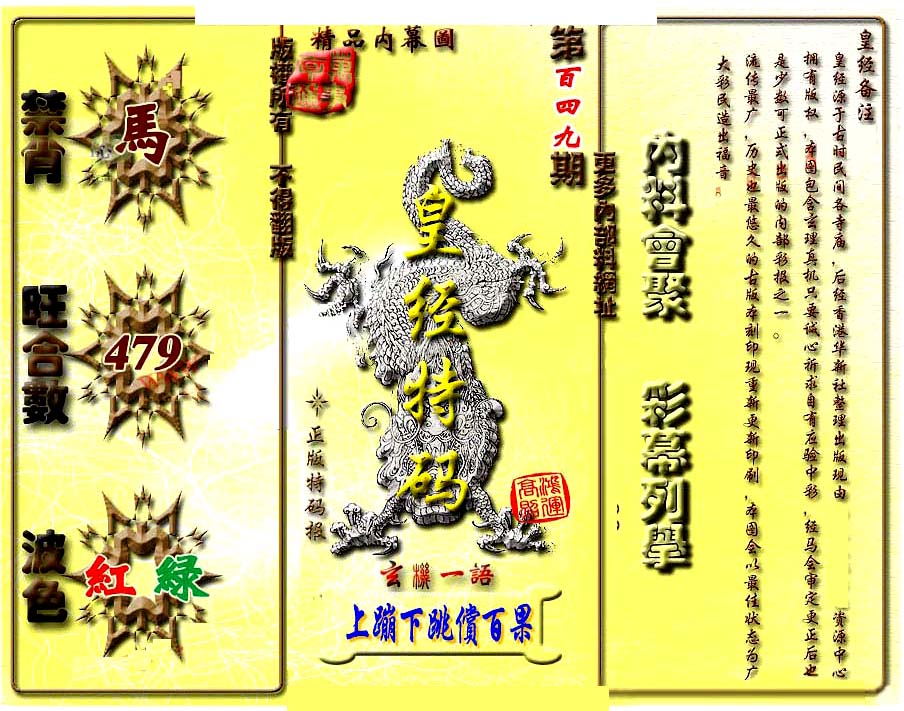 精品内幕圖
版權所有 不得翻版
第百四九期
更多內部料網址
禁肖
馬
旺合數
479
波色
紅 綠
皇经特码
正版特码报
鴻運高照
玄機一語
上蹦下跳償百果
內料會聚 彩幕列舉
皇经备注
皇经源于古时民间各寺庙,后经香港华新社整理出版现由 资源中心
拥有版权,本图包含玄理真机只要诚心祈求自有应验中彩,经马会审定更正后也
是少数可正式出版的内部彩报之一。
流传最广,历史也最悠久的古版本刻印现重新更新印刷,本图会以最佳状态为广
大彩民造出福音